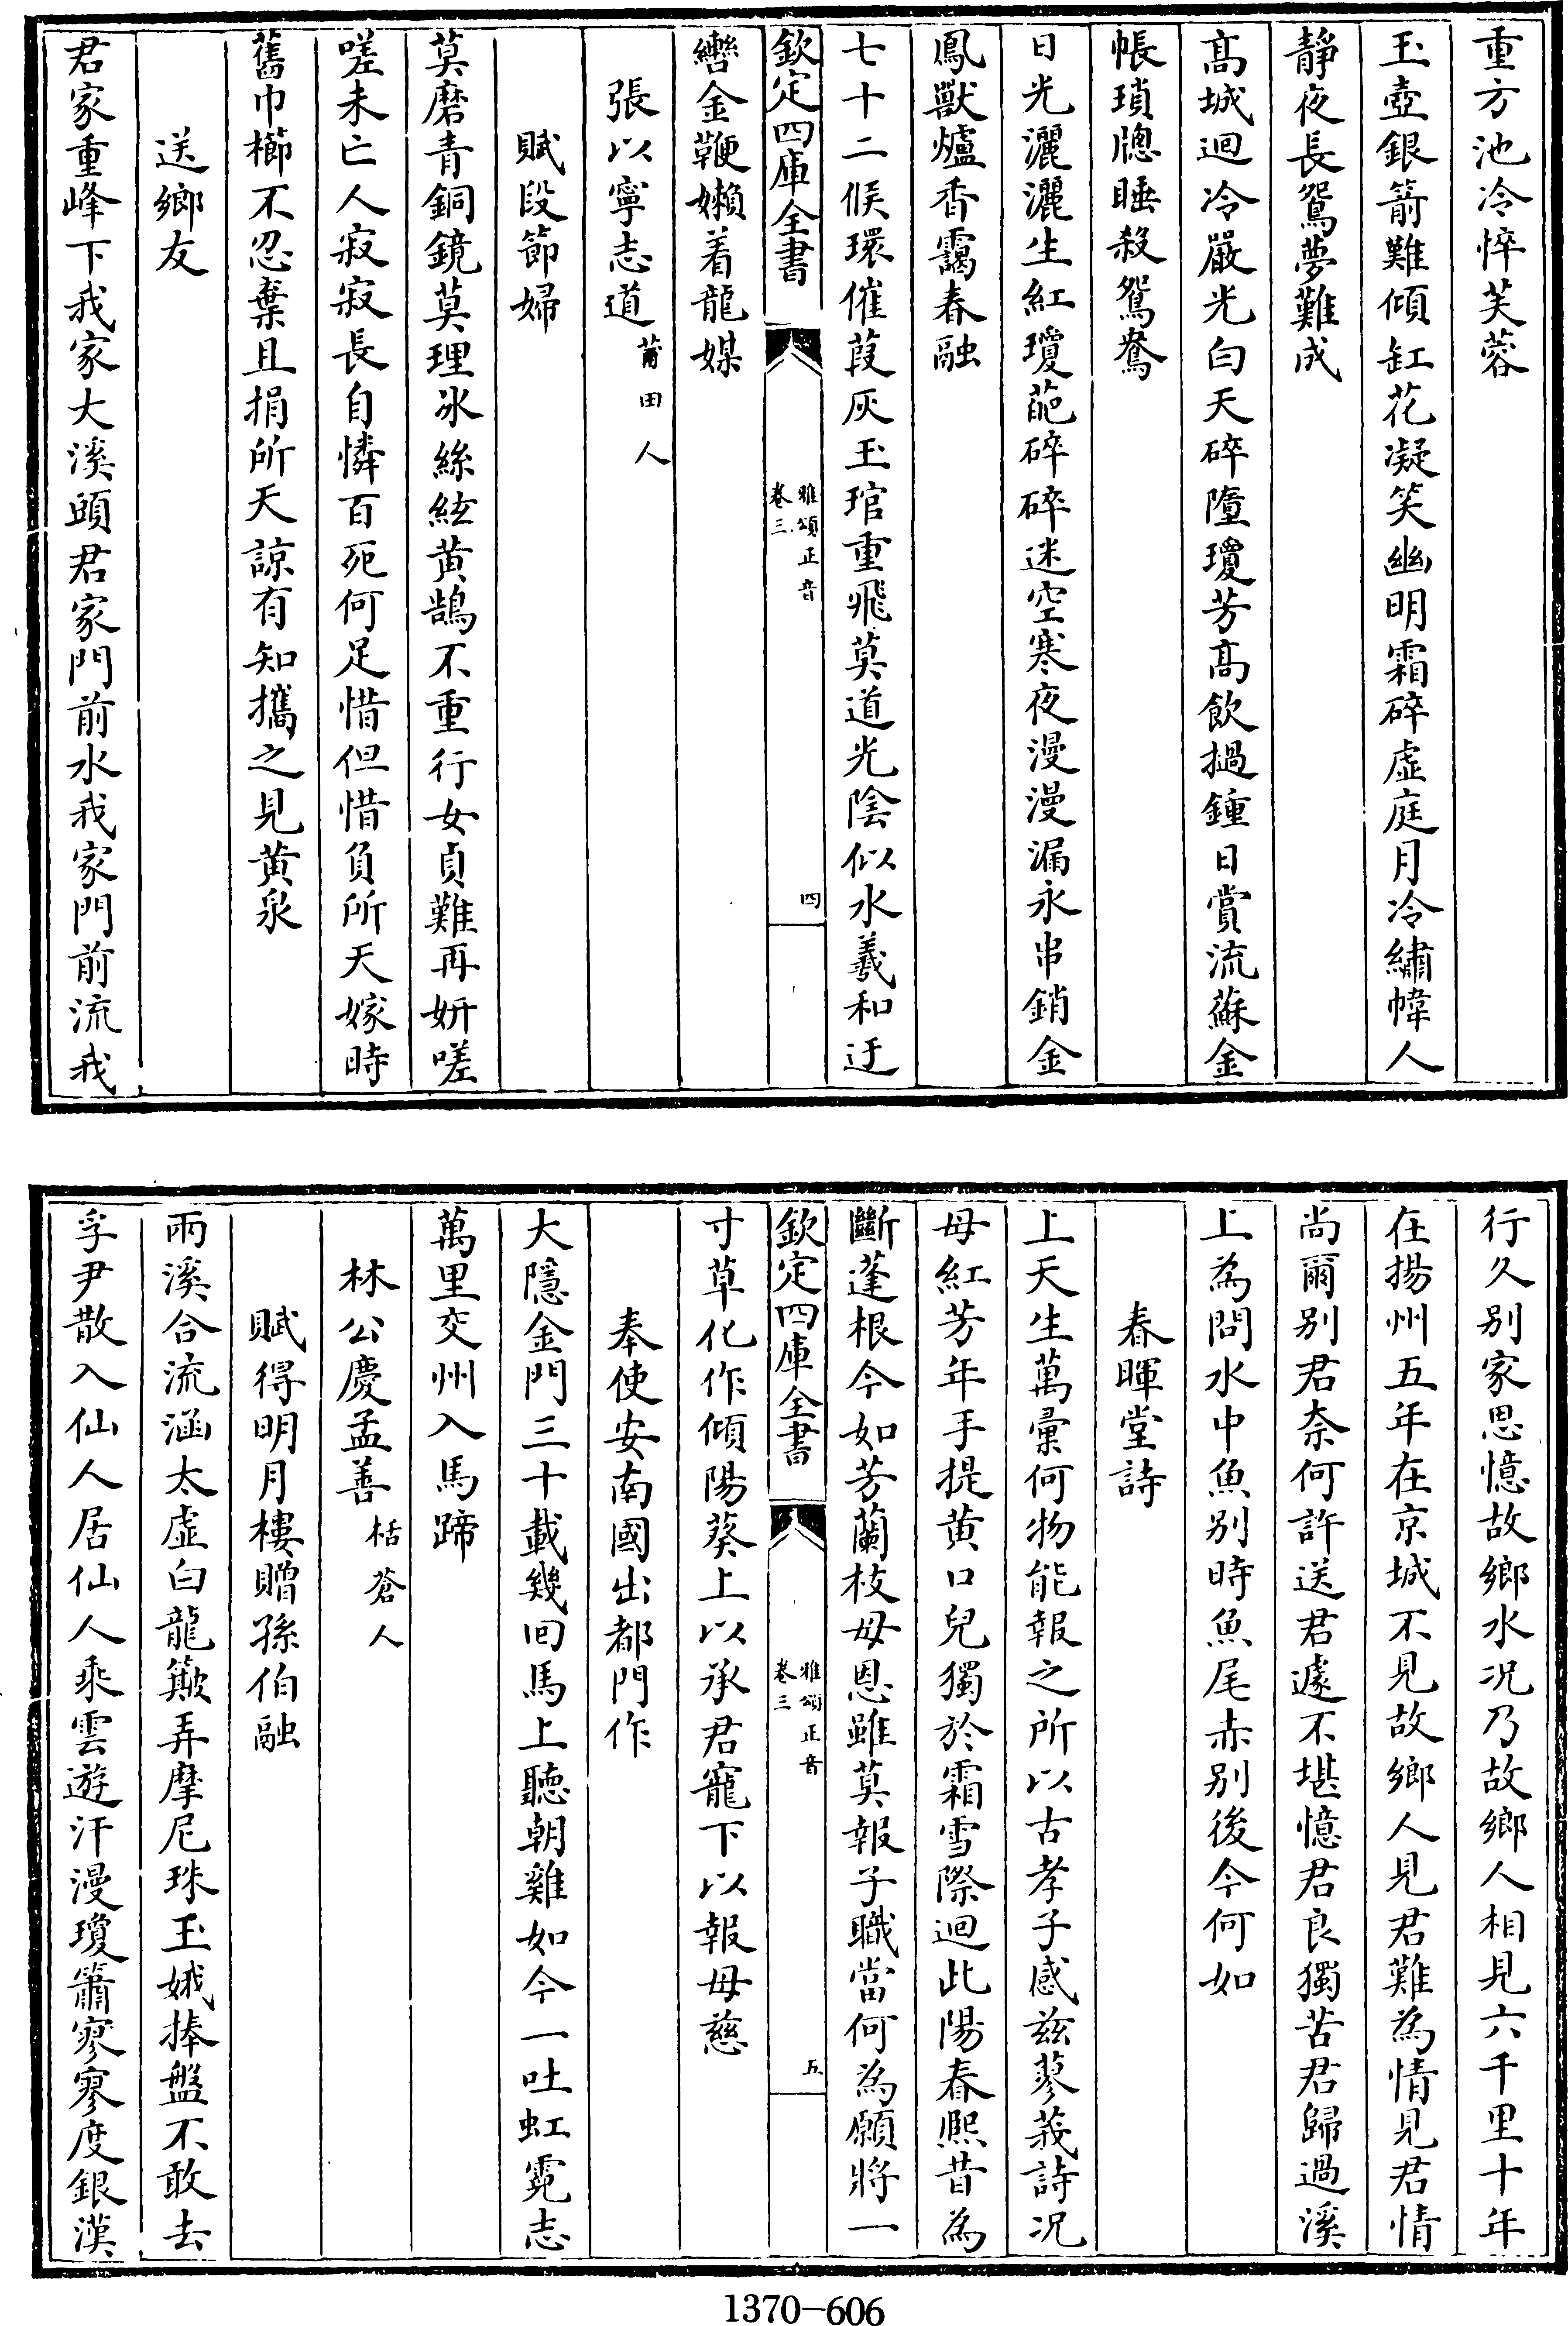 重方池冷悴芙蓉
玉壺銀箭難傾缸花凝笑幽明霜碎虛庭月冷繡幃人
靜夜長鴛夢難成
髙城迴冷嚴光白天碎墮瓊芳髙飲撾鍾日賞流蘇金
帳瑣牕睡殺鴛鴦
日光灑灑生紅瓊葩碎碎迷空寒夜漫漫漏永串銷金
鳳獸爐香靄春融
七十二候環催葭灰玉琯重飛莫道光陰似水羲和迂
欽定四庫全書
雅頌正音
卷三
四
轡金鞭嬾着龍媒
張以寧志道莆田人
賦段節婦
莫磨青銅鏡莫理冰絲絃黄鵠不重行女貞難再妍嗟
嗟未亡人寂寂長自憐百死何足惜但惜負所天嫁時
舊巾櫛不忍棄且捐所天諒有知攜之見黄泉
送鄉友
君家重峰下我家大溪頭君家門前水我家門前流我
行久别家思憶故鄉水况乃故鄉人相見六千里十年
在揚州五年在京城不見故鄉人見君難為情見君情
尚爾别君奈何許送君遽不堪憶君良獨苦君歸過溪
上為問水中魚别時魚尾赤别後今何如
春暉堂詩
上天生萬彚何物能報之所以古孝子感兹蓼莪詩况
母紅芳年手提黄口兒獨於霜雪際迴此陽春熙昔為
斷蓬根今如芳蘭枝母恩雖莫報子職當何為願將一
欽定四庫全書
雅頌正音
卷三
五
寸草化作傾陽葵上以承君寵下以報母慈
奉使安南國出都門作
大隱金門三十載幾回馬上聽朝雞如今一吐虹霓志
萬里交州入馬蹄
林公慶孟善栝蒼人
賦得明月樓贈孫伯融
兩溪合流涵太虛白龍簸弄摩尼珠玉娥捧盤不敢去
孚尹散入仙人居仙人乘雲遊汗漫瓊簫寥寥度銀漢
1370-606